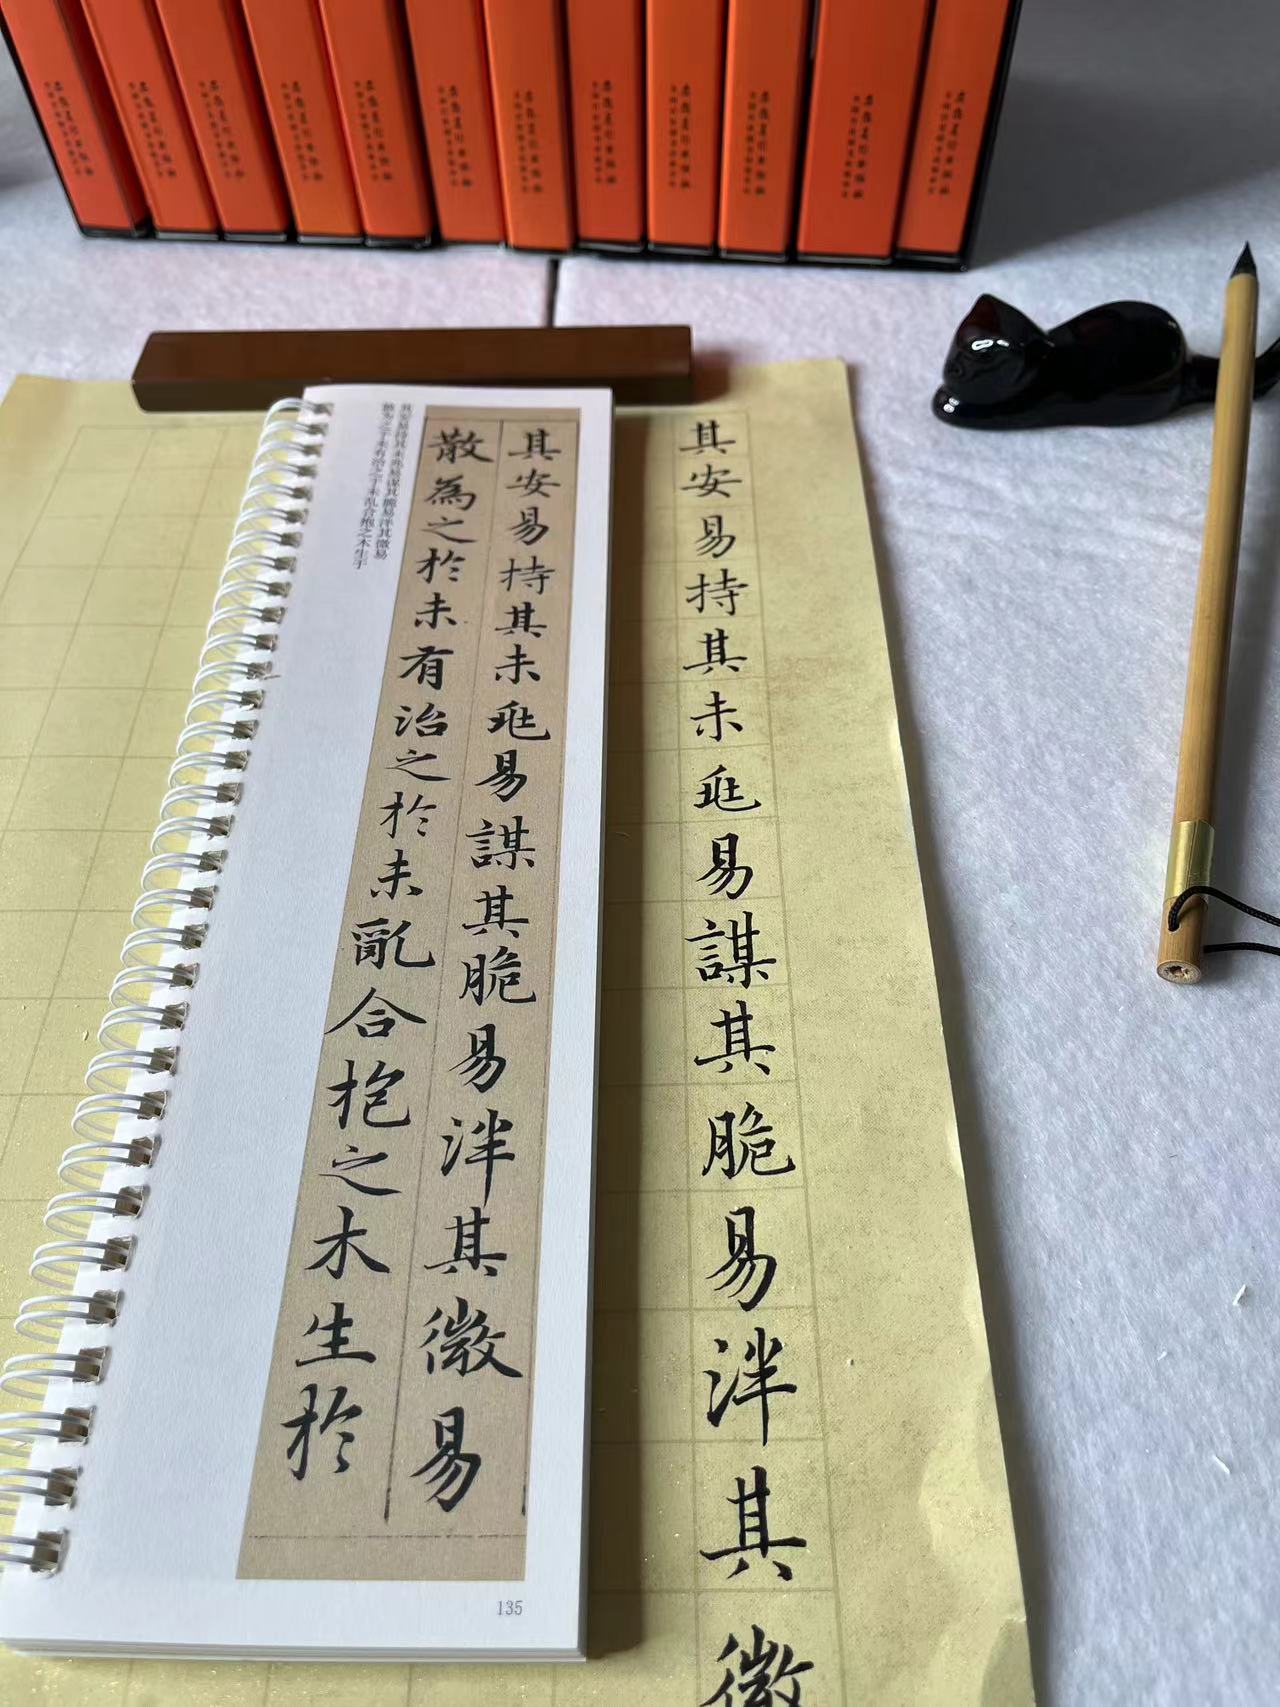 其安易持其未兆易謀其脆易泮其微
其安易持其未兆易謀其脆易泮其微易
散為之於未有治之於未亂合抱之木生於
其安易持其未兆易谋其脆易泮其微易
散为之于未有治之于未乱合抱之木生于
135